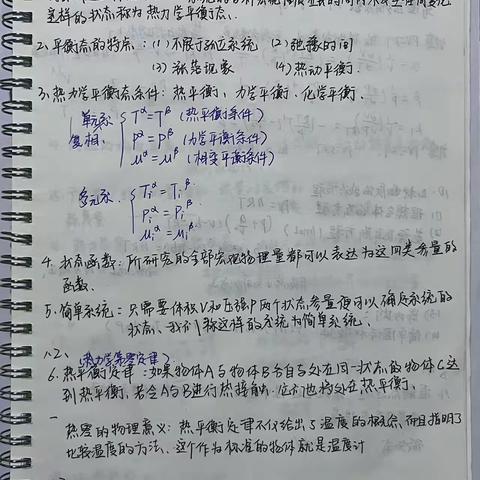 这样的状态称为热力学平衡态.
2. 平衡态的特点: (1) 不限于孤立系统 (2) 弛豫时间
(3) 涨落现象 (4) 热动平衡.
3. 热力学平衡态条件: 热平衡、力学平衡、化学平衡.
单元系 T^α = T^β (热平衡条件)
复相. P^α = P^β (力学平衡条件)
μ^α = μ^β (相变平衡条件)
多元系. T_i^α = T_i^β.
P_i^α = P_i^β
μ_i^α = μ_i^β.
4. 状态函数: 所研究的全部宏观物理量都可以表达为这四类参量的
函数.
5. 简单系统: 只需要体积V和压强P两个状态参量便可以确定系统的
状态、我们称这样的系统为简单系统.
1.2、
(热力学第零定律)
6. 热平衡定律: 如果物体A与物体B各自与处在同一状态的物体C达
到热平衡, 若令A与B进行热接触, 它们也将处在热平衡.
热零的物理意义: 热平衡定律不仅给出了温度的概念, 而且指明了
比较温度的方法、这个作为标准的物体就是温度计